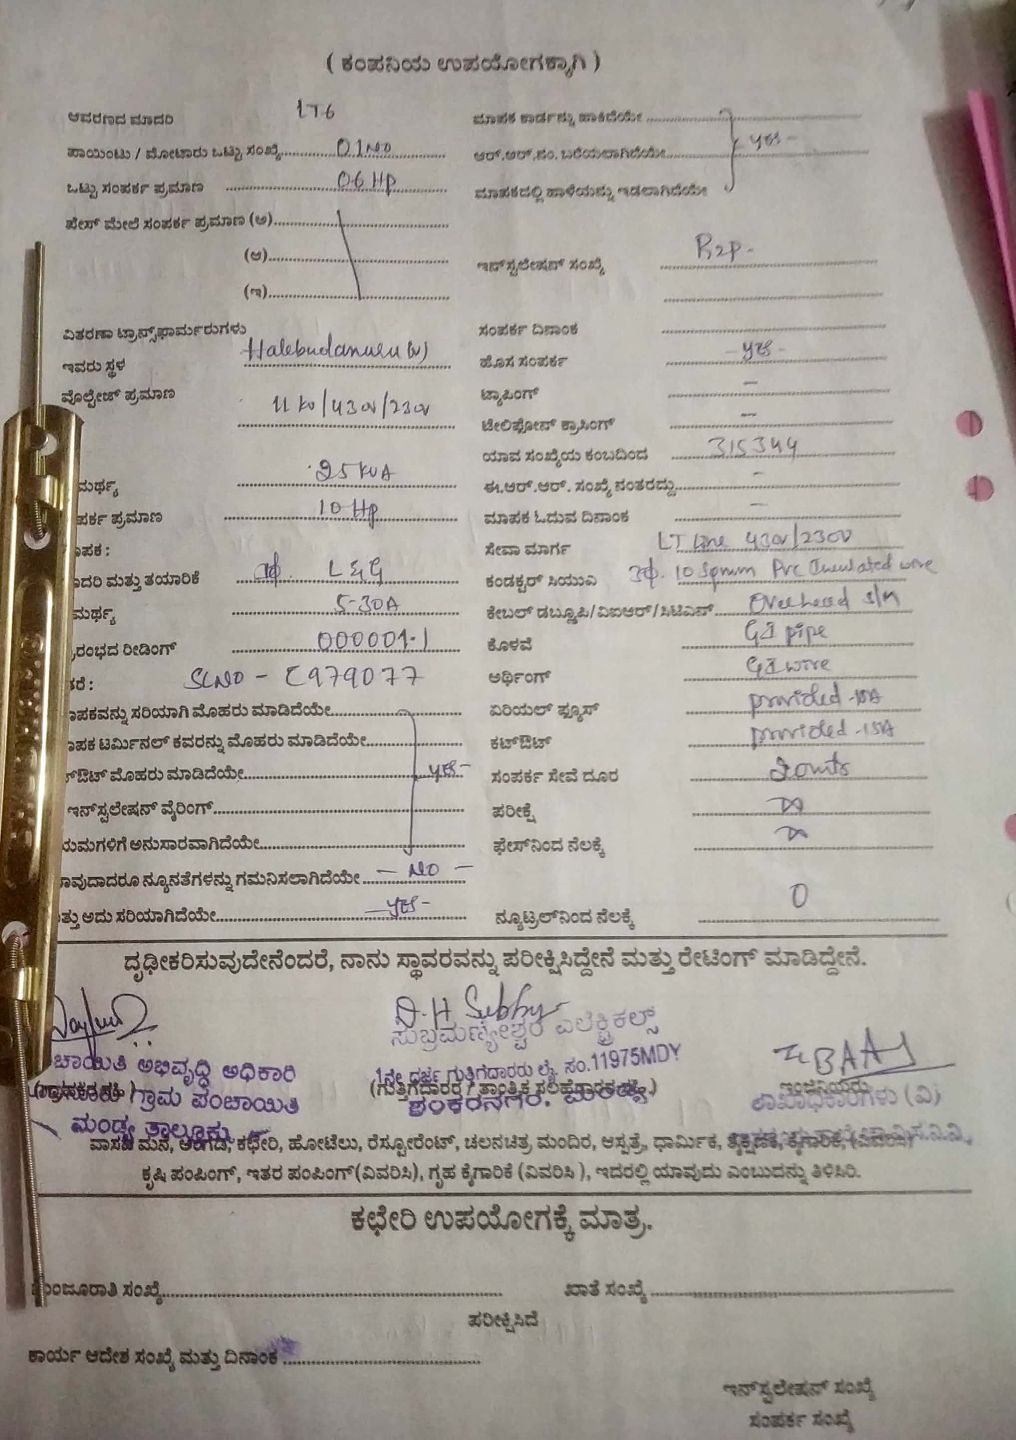 ( ಕಂಪನಿಯ ಉಪಯೋಗಕ್ಕಾಗಿ )
ಆವರಣದ ಮಾದರಿ LT6
ಪಾಯಿಂಟು / ಮೋಟಾರು ಒಟ್ಟು ಸಂಖ್ಯೆ 01 No
ಒಟ್ಟು ಸಂಪರ್ಕ ಪ್ರಮಾಣ 06 Hp
ಫೇಸ್ ಮೇಲೆ ಸಂಪರ್ಕ ಪ್ರಮಾಣ (ಅ)
(ಆ)
(ಇ)
ವಿತರಣಾ ಟ್ರಾನ್ಸ್‌ಫಾರ್ಮರುಗಳು
ಇವರು ಸ್ಥಳ Halebudanuru (v)
ವೊಲ್ಟೇಜ್ ಪ್ರಮಾಣ 11 kv/430v/230v
ಮರ್ಥ್ಯ 25 KVA
ಪರ್ಕ ಪ್ರಮಾಣ 10 Hp
ಾಪಕ :
ಾದರಿ ಮತ್ತು ತಯಾರಿಕೆ 3ф. L&G
ಮರ್ಥ್ಯ 5-30A
್ರಾರಂಭದ ರೀಡಿಂಗ್ 000001.1
ತರೆ : SL NO -
ಾಪಕವನ್ನು ಸರಿಯಾಗಿ ಮೊಹರು ಮಾಡಿದೆಯೇ
ಾಪಕ ಟರ್ಮಿನಲ್ ಕವರನ್ನು ಮೊಹರು ಮಾಡಿದೆಯೇ
ಔಟ್ ಮೊಹರು ಮಾಡಿದೆಯೇ yes-
ಇನ್‌ಸ್ಟಲೇಷನ್ ವೈರಿಂಗ್
ಯಮಗಳಿಗೆ ಅನುಸಾರವಾಗಿದೆಯೇ
ಾವುದಾದರೂ ನ್ಯೂನತೆಗಳನ್ನು ಗಮನಿಸಲಾಗಿದೆಯೇ - No -
ತ್ತು ಅದು ಸರಿಯಾಗಿದೆಯೇ -yes-
ಮಾಪಕ ಕಾರ್ಡನ್ನು ಹಾಕಿದೆಯೇ
ಆರ್.ಆರ್.ನಂ. ಬರೆಯಲಾಗಿದೆಯೇ yes-
ಮಾಪಕದಲ್ಲಿ ಹಾಳೆಯನ್ನು ಇಡಲಾಗಿದೆಯೇ
ಇನ್‌ಸ್ಟಲೇಷನ್ ಸಂಖ್ಯೆ
ಸಂಪರ್ಕ ದಿನಾಂಕ
ಹೊಸ ಸಂಪರ್ಕ -yes-
ಟ್ಯಾಪಿಂಗ್ -
ಟೇಲಿಫೋನ್ ಕ್ರಾಸಿಂಗ್ -
ಯಾವ ಸಂಖ್ಯೆಯ ಕಂಬದಿಂದ 315344
ಈ.ಆರ್.ಆರ್. ಸಂಖ್ಯೆ ನಂತರದ್ದು -
ಮಾಪಕ ಓದುವ ದಿನಾಂಕ -
ಸೇವಾ ಮಾರ್ಗ LT Line 430v/230v
ಕಂಡಕ್ಟರ್ ಸಿಯುಎ 3ф. 10 Sqmm Pvc Insulated wire
ಕೇಬಲ್ ಡಬ್ಲ್ಯೂಪಿ/ವಿಐಆರ್/ಸಿಟಿಎನ್ Overhead S/M
ಕೊಳವೆ GI pipe
ಅರ್ಥಿಂಗ್ GI wire
ಏರಿಯಲ್ ಫ್ಯೂಸ್ provided -15A
ಕಟ್‌ಔಟ್ provided -15A
ಸಂಪರ್ಕ ಸೇವೆ ದೂರ
ಪರೀಕ್ಷೆ
ಫೇಸ್‌ನಿಂದ ನೆಲಕ್ಕೆ
ನ್ಯೂಟ್ರಲ್‌ನಿಂದ ನೆಲಕ್ಕೆ 0
ದೃಢೀಕರಿಸುವುದೇನೆಂದರೆ, ನಾನು ಸ್ಥಾವರವನ್ನು ಪರೀಕ್ಷಿಸಿದ್ದೇನೆ ಮತ್ತು ರೇಟಿಂಗ್ ಮಾಡಿದ್ದೇನೆ.
ಚಾಯಿತಿ ಅಭಿವೃದ್ಧಿ ಅಧಿಕಾರಿ
ಗ್ರಾಮ ಪಂಚಾಯಿತಿ
ಮಂಡ್ಯ ತಾಲ್ಲೂಕು
ಸುಬ್ರಮಣ್ಯೇಶ್ವರ ಎಲೆಕ್ಟ್ರಿಕಲ್ಸ್
1ನೇ ದರ್ಜೆ ಗುತ್ತಿಗೆದಾರರು ಲೈ. ಸಂ.11975MDY
(ಗುತ್ತಿಗೆದಾರರ / ತಾಂತ್ರಿಕ ಸಲಹೆಗಾರರ ಸಹಿ)
ಶಂಕರನಗರ. ಮಂಡ್ಯ.
ಇಂಜಿನಿಯರು
ಶಾಖಾಧಿಕಾರಿಗಳು (ವಿ)
ವಾಸದ ಮನೆ, ಅಂಗಡಿ, ಕಛೇರಿ, ಹೋಟೆಲು, ರೆಸ್ಟೋರೆಂಟ್, ಚಲನಚಿತ್ರ ಮಂದಿರ, ಆಸ್ಪತ್ರೆ, ಧಾರ್ಮಿಕ, ಶೈಕ್ಷಣಿಕ, ಕೈಗಾರಿಕೆ, (ವಿವರಿಸಿ)
ಕೃಷಿ ಪಂಪಿಂಗ್, ಇತರ ಪಂಪಿಂಗ್(ವಿವರಿಸಿ), ಗೃಹ ಕೈಗಾರಿಕೆ (ವಿವರಿಸಿ ), ಇದರಲ್ಲಿ ಯಾವುದು ಎಂಬುದನ್ನು ತಿಳಿಸಿರಿ.
ಕಛೇರಿ ಉಪಯೋಗಕ್ಕೆ ಮಾತ್ರ.
ಮಂಜೂರಾತಿ ಸಂಖ್ಯೆ ಖಾತೆ ಸಂಖ್ಯೆ
ಪರೀಕ್ಷಿಸಿದೆ
ಕಾರ್ಯ ಆದೇಶ ಸಂಖ್ಯೆ ಮತ್ತು ದಿನಾಂಕ
ಇನ್‌ಸ್ಟಲೇಷನ್ ಸಂಖ್ಯೆ
ಸಂಪರ್ಕ ಸಂಖ್ಯೆ